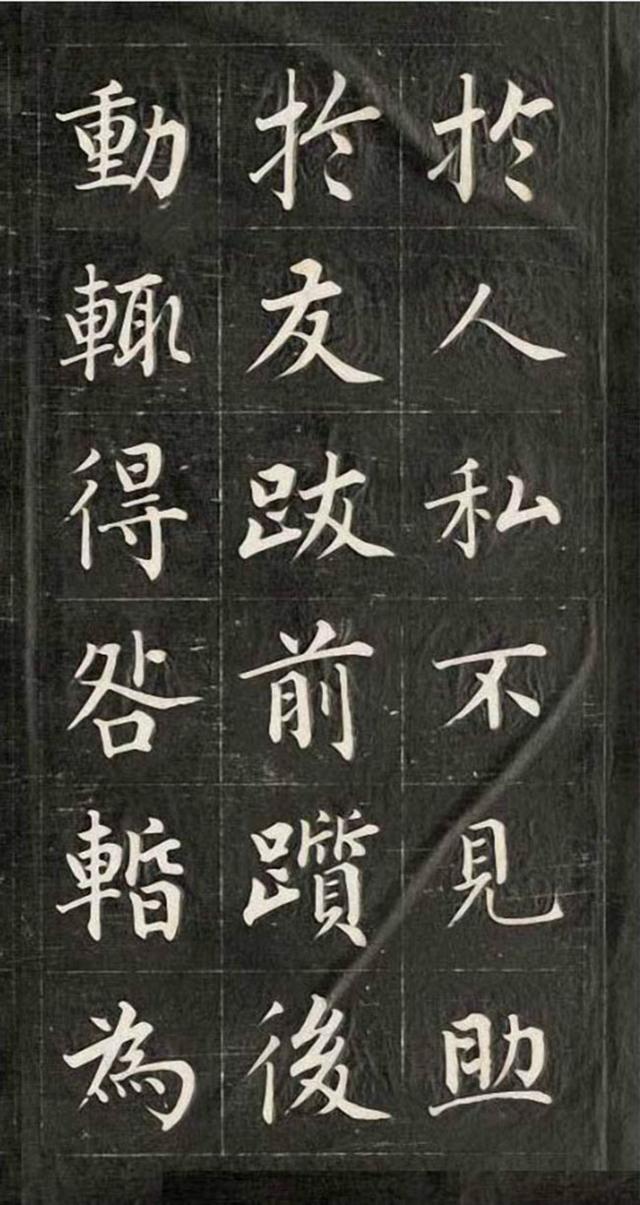 於人私不見助
於友跋前躓後
動輒得咎暫為